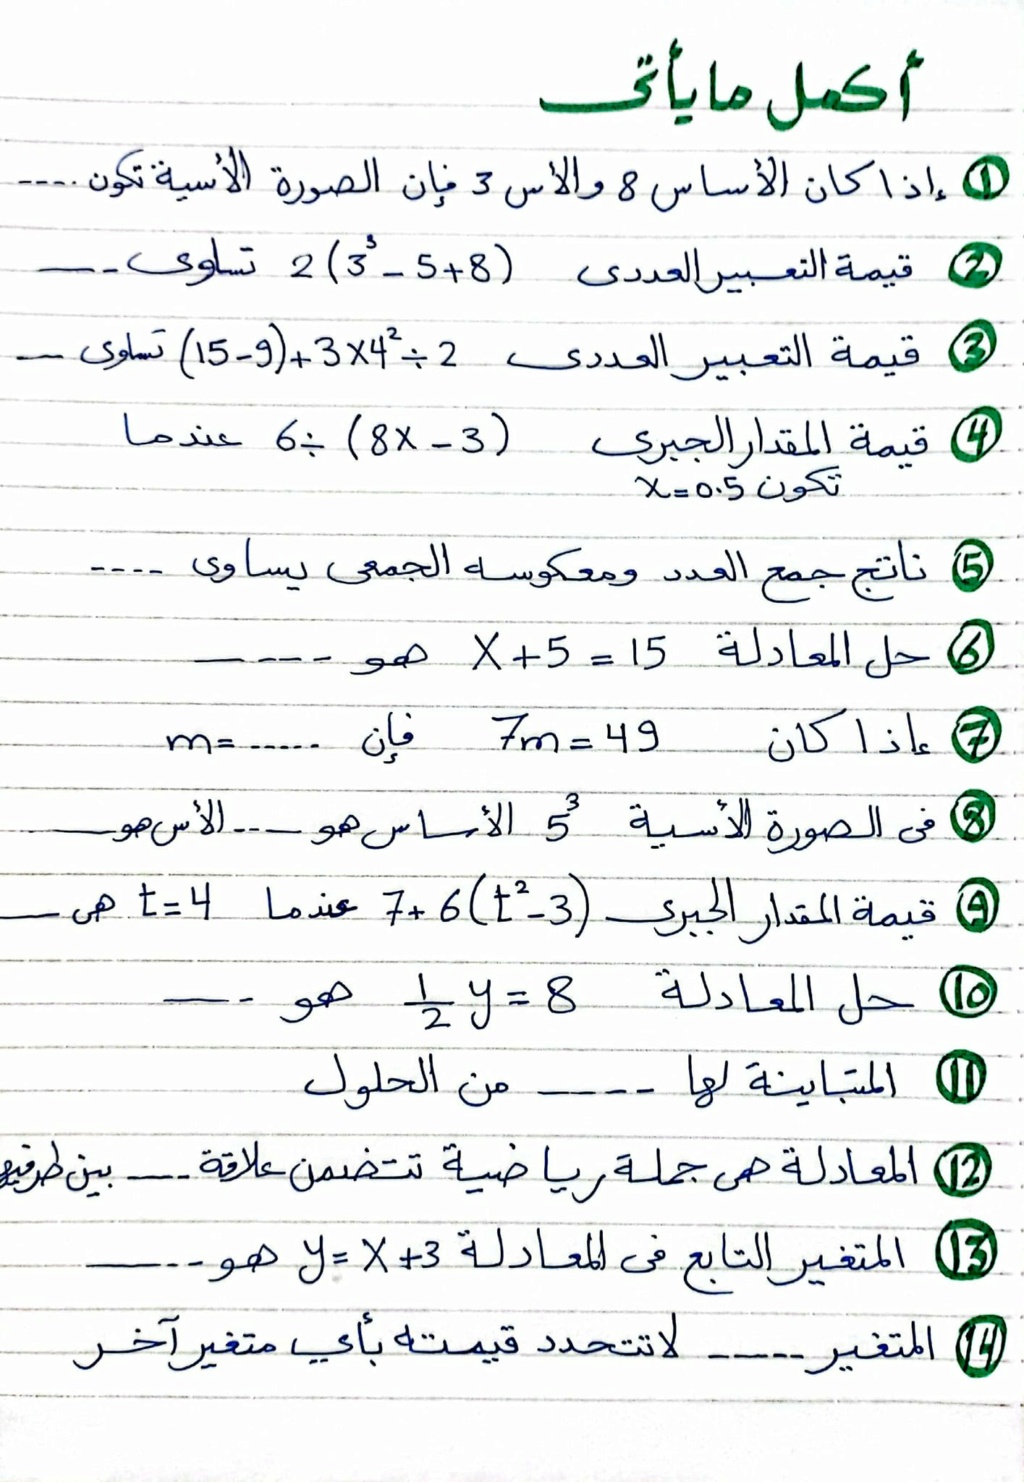 أكمل ما يأتى
① إذا كان الأساس 8 والأس 3 فإن الصورة الأسية تكون ....
② قيمة التعبير العددى 2(3³ - 5+8) تساوى ـــ--
③ قيمة التعبير العددى (15-9)+3×4²÷2 تساوى ــــ
④ قيمة المقدار الجبرى 6÷(8x - 3) عندما
تكون x=0.5
⑤ ناتج جمع العدد ومعكوسه الجمعى يساوى ----
⑥ حل المعادلة x+5 = 15 هو ----ـــ
⑦ إذا كان 7m = 49 فإن m= .....
⑧ فى الصورة الأسية 5³ الأساس هو ــ--- الأس هو ـــــ
⑨ قيمة المقدار الجبرى 7+6(t²-3) عندما t=4 هى ــــ
⑩ حل المعادلة ½ y = 8 هو --ــــ
⑪ المتباينة لها ----ــــ من الحلول
⑫ المعادلة هى جملة رياضية تتضمن علاقة ــ--- بين طرفيها
⑬ المتغير التابع فى المعادلة y= x+3 هو ---ــــ
⑭ المتغير ــــ--- لا تتحدد قيمته بأي متغير آخر